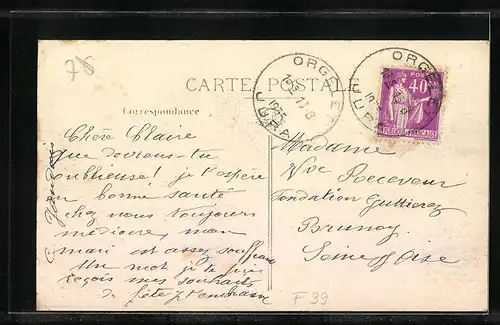 78
CARTE POSTALE
Correspondance
ORGELET
15-13 8
1935
JURA
ORGELET
JURA
POSTES
40
REPUBLIQUE FRANÇAISE
Chère Claire
que deviens-tu
oublieuse! je t'espère
en bonne santé
chez nous toujours
médiocre, mon
mari est assez souffrant
Un mot je te prie
reçois mes souhaits
de fête Je t'embrasse
Madame
Vve Receveur
Fondation Guttierez
Brunoy
Seine & Oise
F 39